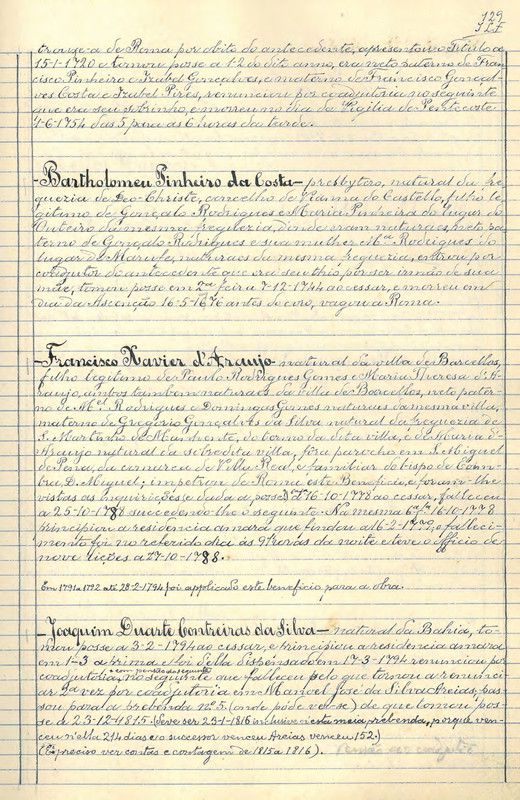 129
trouxe-a de Roma por obito do antecedente, apresentou o Titulo a
15-1-1720 e tomou posse a 12 do dito anno, era neto paterno de Fran-
cisco Pinheiro e Izabel Gonçalves, e materno de Francisco Gonçal-
ves Costa e Izabel Pires, renunciou por coadjutoria no seguinte
que era seu sobrinho, e morreu no dia da Vigilia de Pentecoste
1-6-1754 das 5 para as 6 horas da tarde.
-Bartholomeu Pinheiro da Costa- presbytero, natural da fre-
guezia de Deo-Christe, concelho de Vianna do Castello, filho le-
gitimo de Gonçalo Rodrigues e Maria Pinheira do lugar do
Outeiro da mesma freguezia, d'onde eram naturaes, neto pa-
terno de Gonçalo Rodrigues e sua mulher Mª Rodrigues do
lugar de naturaes da mesma freguezia, entrou por
coadjutor do antecedente que era seu thio, por ser irmão de sua
mãe, tomou posse em 2ª feira 7-12-1744 ao cessar, e morreu em
dia da Ascenção 16-5-1776 antes do coro, vagou a Roma.
-Francisco Xavier d'Araujo- natural da villa de Barcellos,
filho legitimo de Paulo Rodrigues Gomes e Maria Thereza d'A-
raujo, ambos tambem naturaes da villa de Barcellos, neto pater-
no de Mel Rodrigues e Domingas Gomes naturaes da mesma villa,
materno de Gregorio Gonçalves da Silva natural da freguezia de
S. Martinho de Manhente, do termo da dita villa, e de Maria d'-
Araujo natural da sobredita villa, fôra parocho em S. Miguel
de Pena, da comarca de Villa Real, e familiar do bispo de Coim-
bra D. Miguel; impetrou de Roma este Beneficio, e foram-lhe
vistas as inquirições e dada a posse 16-10-1778 ao cessar, falleceu
a 25-10-1788 succedendo-lhe o seguinte. Na mesma 6ª fª 16-10-1778
principiou a residencia amara que findou a 16-2-1779, e falleci-
mento foi no referido dia ás 9 horas da noite e teve o officio de
nove lições a 27-10-1788.
Em 1791 a 1792 até 28-2-1794 foi applicado este beneficio para a obra.
-Joaquim Duarte Contreiras da Silva- natural da Bahia, to-
mou posse a 3-2-1794 ao cessar, e principiou a residencia amara
em 1-3 á prima e foi d'ella dispensado em 17-3-1794 renunciou por
coadjutoria, no seguinte que falleceu pelo que tornou a renunci-
ar 2ª vez por coadjutoria em Manoel José da Silva Areias, pas-
sou para a prebenda nº 5. (onde póde ver-se) de que tomou pos-
se a 23-12-1815. (deve ser 29-1-1816 inclusive n'esta meia prebenda, porque ven-
ceu n'ella 214 dias e o successor venceu Areias venceu 152.)
(É preciso ver contas e contagem de 1815 a 1816).